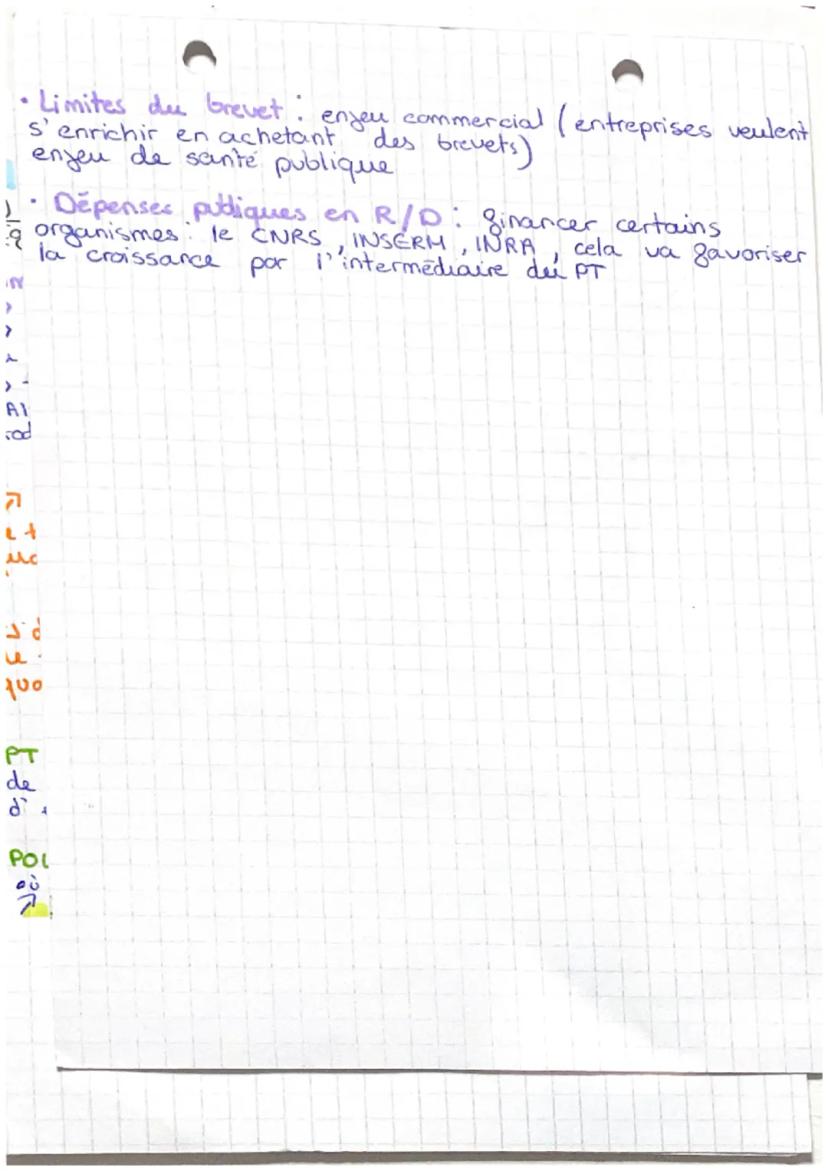 • Limites du brevet : enjeu commercial (entreprises veulent
s'enrichir en achetant des brevets)
enjeu de santé publique
• Dépenses publiques en R/D : financer certains
organismes : le CNRS, INSERM, INRA, cela va favoriser
la croissance par l'intermédiaire du PT
PT
de
POL
où